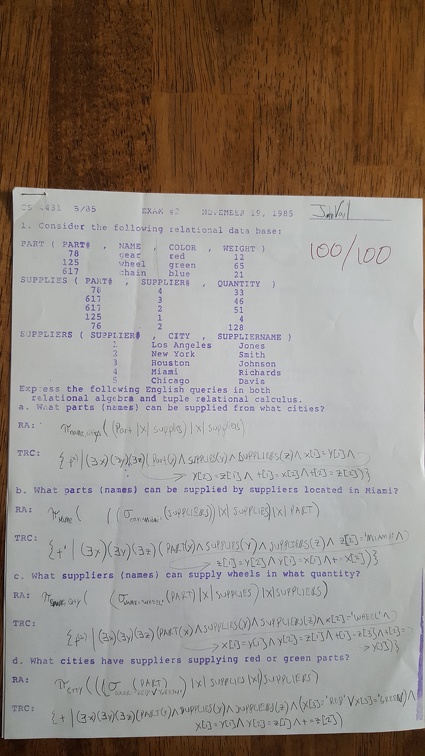 CS 4431 5/85 EXAM #2 NOVEMBER 19, 1985
100/100
1. Consider the following relational data base:
PART ( PART# , NAME , COLOR , WEIGHT )
78 gear red 12
125 wheel green 65
617 chain blue 21
SUPPLIES ( PART# , SUPPLIER# , QUANTITY )
78 4 33
617 3 46
617 2 51
125 1 4
76 2 128
SUPPLIERS ( SUPPLIER# , CITY , SUPPLIERNAME )
1 Los Angeles Jones
2 New York Smith
3 Houston Johnson
4 Miami Richards
5 Chicago Davis
Express the following English queries in both
relational algebra and tuple relational calculus.
a. What parts (names) can be supplied from what cities?
RA: π (Part |X| supplies) |X| suppliers)
TRC: (∃x)(∃y)(∃z)(Part(x) ∧ SUPPLIES(Y) ∧ SUPPLIERS(Z) ∧ X[1]=Y[1] ∧
b. What parts (names) can be supplied by suppliers located in Miami?
RA: π NAME (SUPPLIERS)) |X| SUPPLIES) |X| PART)
TRC: (∃x)(∃y)(∃z)(PART(X) ∧ SUPPLIES(Y) ∧ SUPPLIERS(Z) ∧ Z[2]='MIAMI' ∧
c. What suppliers (names) can supply wheels in what quantity?
RA: (PART) |X| SUPPLIES) |X| SUPPLIERS)
TRC: (∃x)(∃y)(∃z)(PART(X) ∧ SUPPLIES(Y) ∧ SUPPLIERS(Z) ∧ X[2]='WHEEL' ∧
d. What cities have suppliers supplying red or green parts?
RA: π CITY (PART) |X| SUPPLIES |X| SUPPLIERS)
TRC: (∃x)(∃y)(∃z)(PART(X) ∧ SUPPLIES(Y) ∧ SUPPLIERS(Z) ∧ (X[3]='RED' ∨ X[3]='GREEN') ∧